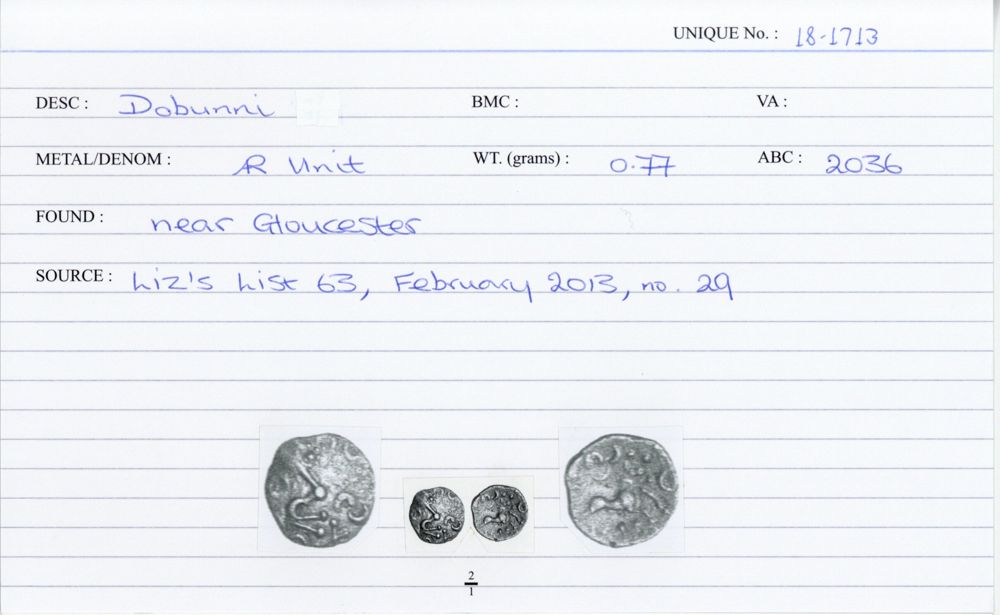 UNIQUE No. : 18-1713
DESC : Dobunni BMC : VA :
METAL/DENOM : R Unit WT. (grams) : 0.77 ABC : 2036
FOUND : near Gloucester
SOURCE : Liz's List 63, February 2013, no. 29
2
1